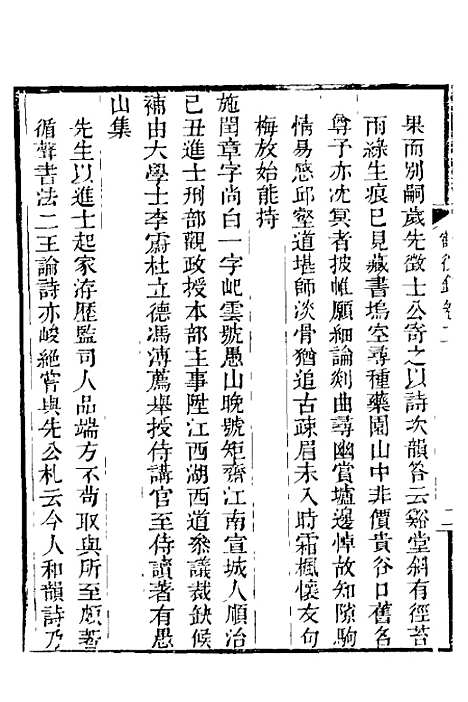 果而別嗣歲先徵士公寄之以詩次韻答云谿堂斜有徑苔
雨綠生痕已見藏書塢空尋種藥園山中非價貴谷口舊名
尊子亦沈冥者披帷願細論剡曲尋幽賞壚邊悼故知隙駒
情易感邱壑道堪師淡骨猶追古疎眉未入時霜楓懷友句
梅放始能持
施閏章字尚白一字屺雲號愚山晚號矩齋江南宣城人順治
己丑進士刑部觀政授本部主事陞江西湖西道叅議裁缺候
補由大學士李霨杜立德馮溥薦舉授侍講官至侍讀著有愚
山集
先生以進士起家洊歷監司人品端方不茍取與所至頗著
循聲書法二王論詩亦峻絕嘗與先公札云今人和韻詩乃